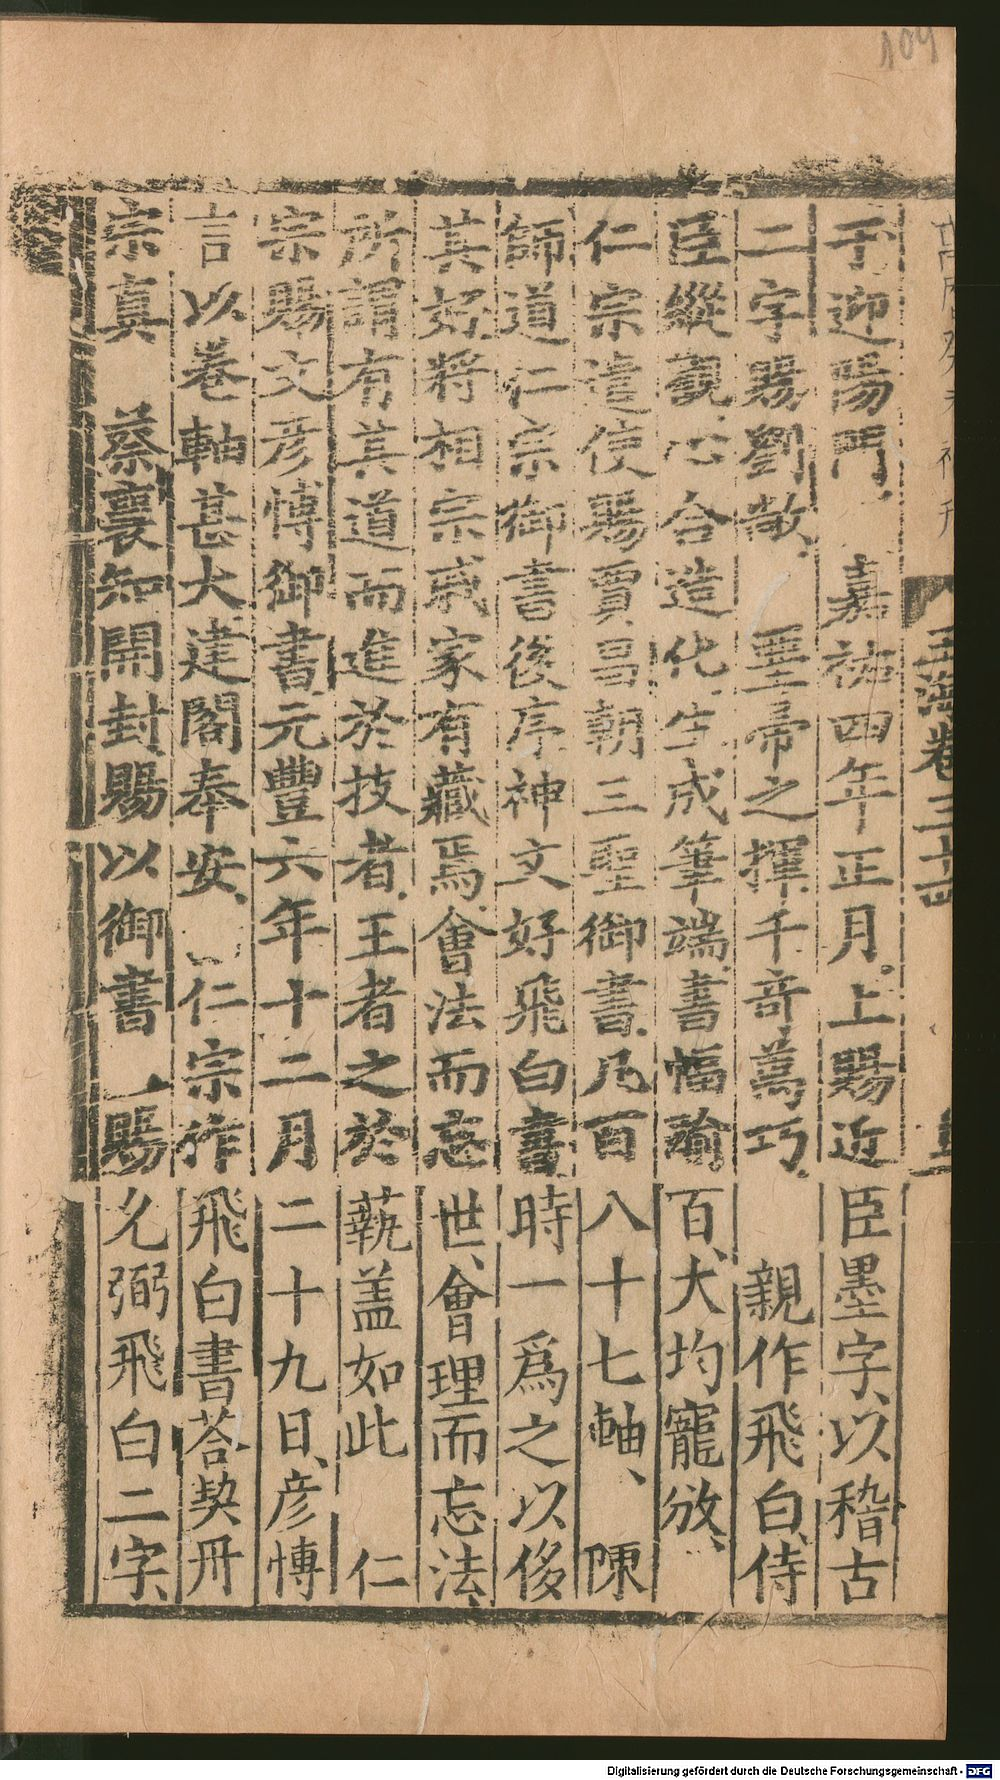 104
玉海卷三十四
于迎陽門、　嘉祐四年正月。上賜近臣墨字、以稽古
二字賜劉敞、　聖帝之揮、千奇萬巧、　親作飛白、侍
臣縱觀、心合造化、生成筆端、書幅踰百、大均寵放、
仁宗遣使賜賈昌朝三聖御書、凡百八十七軸、　陳
師道仁宗御書後序、神文好飛白書、時一爲之以侈
其好、將相宗戚家有藏焉、會法而忘世、會理而忘法、
所謂有其道而進於技者、王者之於蓺盖如此　仁
宗賜文彦博御書、元豐六年十二月二十九日、彦博
言以卷軸甚大、建閣奉安、　仁宗作飛白書荅契丹
宗真　蔡襄知開封、賜以御書　賜允弼飛白二字、
Digitalisierung gefördert durch die Deutsche Forschungsgemeinschaft - DFG